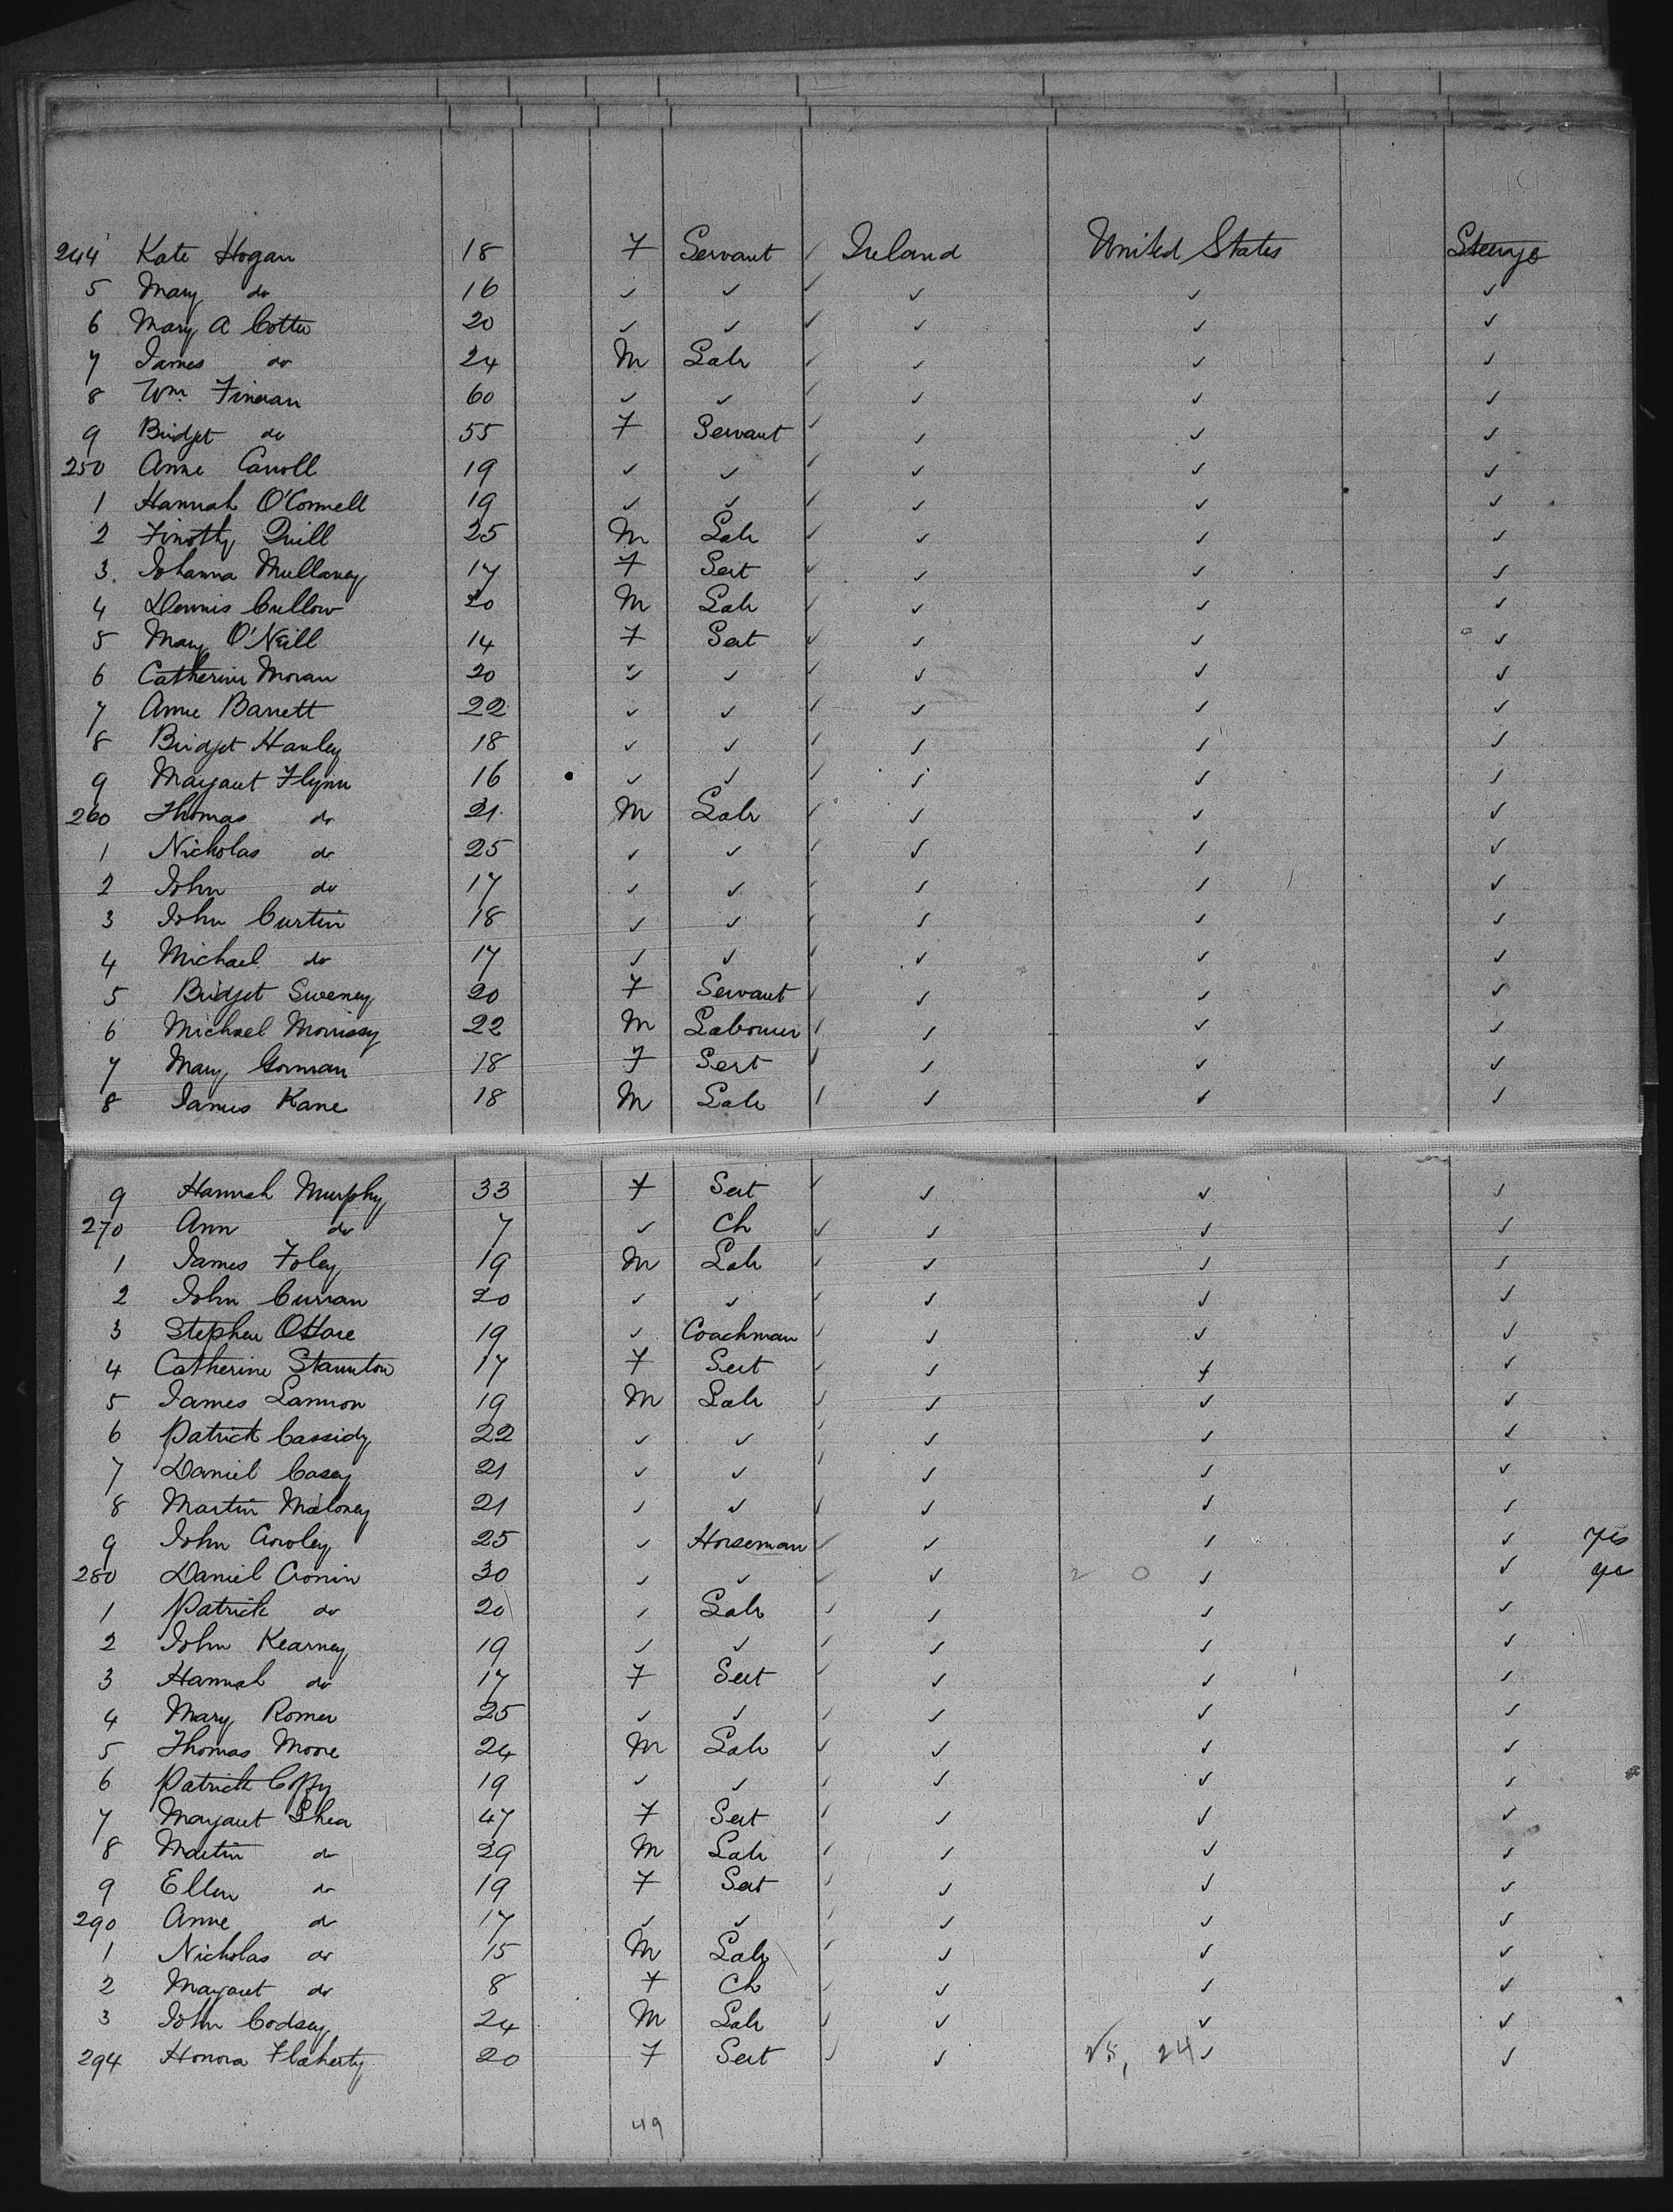 244 Kate Hogan 18 F Servant ✓ Ireland United States Steerage
5 Mary do 16 ✓ ✓ ✓ ✓ ✓ ✓
6 Mary A Cotter 20 ✓ ✓ ✓ ✓ ✓ ✓
7 James do 24 M Labr ✓ ✓ ✓ ✓
8 Wm Fineran 60 ✓ ✓ ✓ ✓ ✓ ✓
9 Bridget do 55 F Servant ✓ ✓ ✓ ✓
250 Anne Carroll 19 ✓ ✓ ✓ ✓ ✓ ✓
1 Hannah O'Connell 19 ✓ ✓ ✓ ✓ ✓ ✓
2 Timothy Quill 25 M Labr ✓ ✓ ✓ ✓
3 Johanna Mullaney 17 F Sert ✓ ✓ ✓ ✓
4 Dennis Cullow 20 M Labr ✓ ✓ ✓ ✓
5 Mary O'Neill 14 F Sert ✓ ✓ ✓ ✓
6 Catherine Moran 20 ✓ ✓ ✓ ✓ ✓ ✓
7 Anne Barrett 22 ✓ ✓ ✓ ✓ ✓ ✓
8 Bridget Hanley 18 ✓ ✓ ✓ ✓ ✓ ✓
9 Margaret Flynn 16 ✓ ✓ ✓ ✓ ✓ ✓
260 Thomas do 21 M Labr ✓ ✓ ✓ ✓
1 Nicholas do 25 ✓ ✓ ✓ ✓ ✓ ✓
2 John do 17 ✓ ✓ ✓ ✓ ✓ ✓
3 John Curtin 18 ✓ ✓ ✓ ✓ ✓ ✓
4 Michael do 17 ✓ ✓ ✓ ✓ ✓ ✓
5 Bridget Sweney 20 F Servant ✓ ✓ ✓ ✓
6 Michael Morrissy 22 M Labourer ✓ ✓ ✓ ✓
7 Mary Gorman 18 F Sert ✓ ✓ ✓ ✓
8 James Kane 18 M Labr ✓ ✓ ✓ ✓
9 Hannah Murphy 33 F Sert ✓ ✓ ✓ ✓
270 Ann do 7 ✓ Ch ✓ ✓ ✓ ✓
1 James Foley 19 M Labr ✓ ✓ ✓ ✓
2 John Curran 20 ✓ ✓ ✓ ✓ ✓ ✓
3 Stephen O'Hare 19 ✓ Coachman ✓ ✓ ✓ ✓
4 Catherine Staunton 17 F Sert ✓ ✓ ✓ ✓
5 James Lannon 19 M Labr ✓ ✓ ✓ ✓
6 Patrick Cassidy 22 ✓ ✓ ✓ ✓ ✓ ✓
7 Daniel Casey 21 ✓ ✓ ✓ ✓ ✓ ✓
8 Martin Maloney 21 ✓ ✓ ✓ ✓ ✓ ✓
9 John Crowley 25 ✓ Horseman ✓ ✓ ✓ ✓ yes
280 Daniel Cronin 30 ✓ ✓ ✓ ✓ 2 0 ✓ ✓ ye
1 Patrick do 20 ✓ Labr ✓ ✓ ✓ ✓
2 John Kearney 19 ✓ ✓ ✓ ✓ ✓ ✓
3 Hannah do 17 F Sert ✓ ✓ ✓ ✓
4 Mary Romer 25 ✓ ✓ ✓ ✓ ✓ ✓
5 Thomas Moore 24 M Labr ✓ ✓ ✓ ✓
6 Patrick Coffy 19 ✓ ✓ ✓ ✓ ✓ ✓
7 Margaret Shea 47 F Sert ✓ ✓ ✓ ✓
8 Martin do 29 M Labr ✓ ✓ ✓ ✓
9 Ellen do 19 F Sert ✓ ✓ ✓ ✓
290 Anne do 17 ✓ ✓ ✓ ✓ ✓ ✓
1 Nicholas do 15 M Labr ✓ ✓ ✓ ✓
2 Margaret do 8 F Ch ✓ ✓ ✓ ✓
3 John Codsey 24 M Labr ✓ ✓ ✓ ✓
294 Honora Flaherty 20 F Sert ✓ ✓ 25, 24 ✓ ✓
49